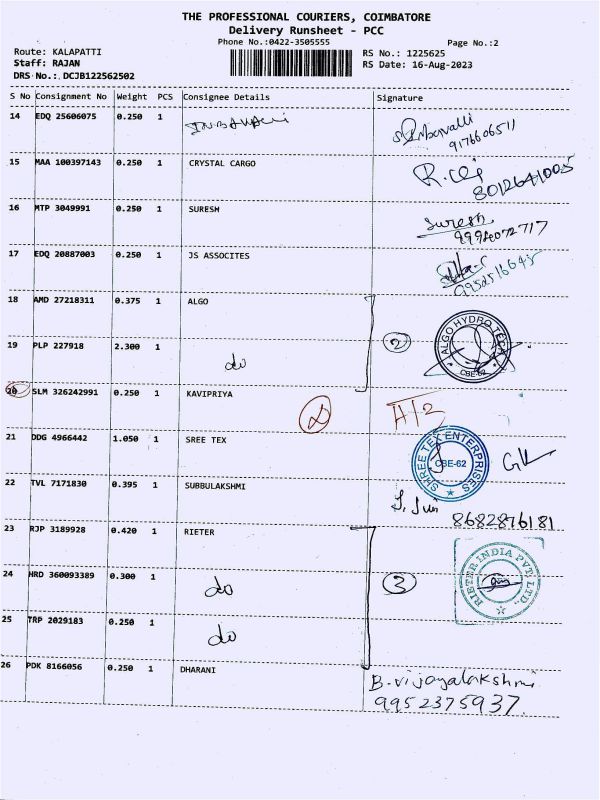 THE PROFESSIONAL COURIERS, COIMBATORE
Delivery Runsheet - PCC
Phone No.:0422-3505555
Page No.:2
Route: KALAPATTI
RS No.: 1225625
Staff: RAJAN
RS Date: 16-Aug-2023
DRS No.: DCJB122562502
S No Consignment No Weight PCS Consignee Details Signature
14 EDQ 25606075 0.250 1
9176606511
15 MAA 100397143 0.250 1 CRYSTAL CARGO
8012641005
16 MTP 3049991 0.250 1 SURESH Suresh
17 EDQ 20887003 0.250 1 JS ASSOCITES
18 AMD 27218311 0.375 1 ALGO
ALGO HYDRO TECH CBE-62
19 PLP 227918 2.300 1 do 2
20 SLM 326242991 0.250 1 KAVIPRIYA
21 DDG 4966442 1.050 1 SREE TEX
SHREE TEX ENTERPRISES CBE-62
22 TVL 7171830 0.395 1 SUBBULAKSHMI
8682876181
23 RJP 3189928 0.420 1 RIETER
RIETER INDIA PVT. LTD.,
24 HRD 360093389 0.300 1 do 3
25 TRP 2029183 0.250 1 do
26 PDK 8166056 0.250 1 DHARANI B. Vijayalakshmi
9952375937.